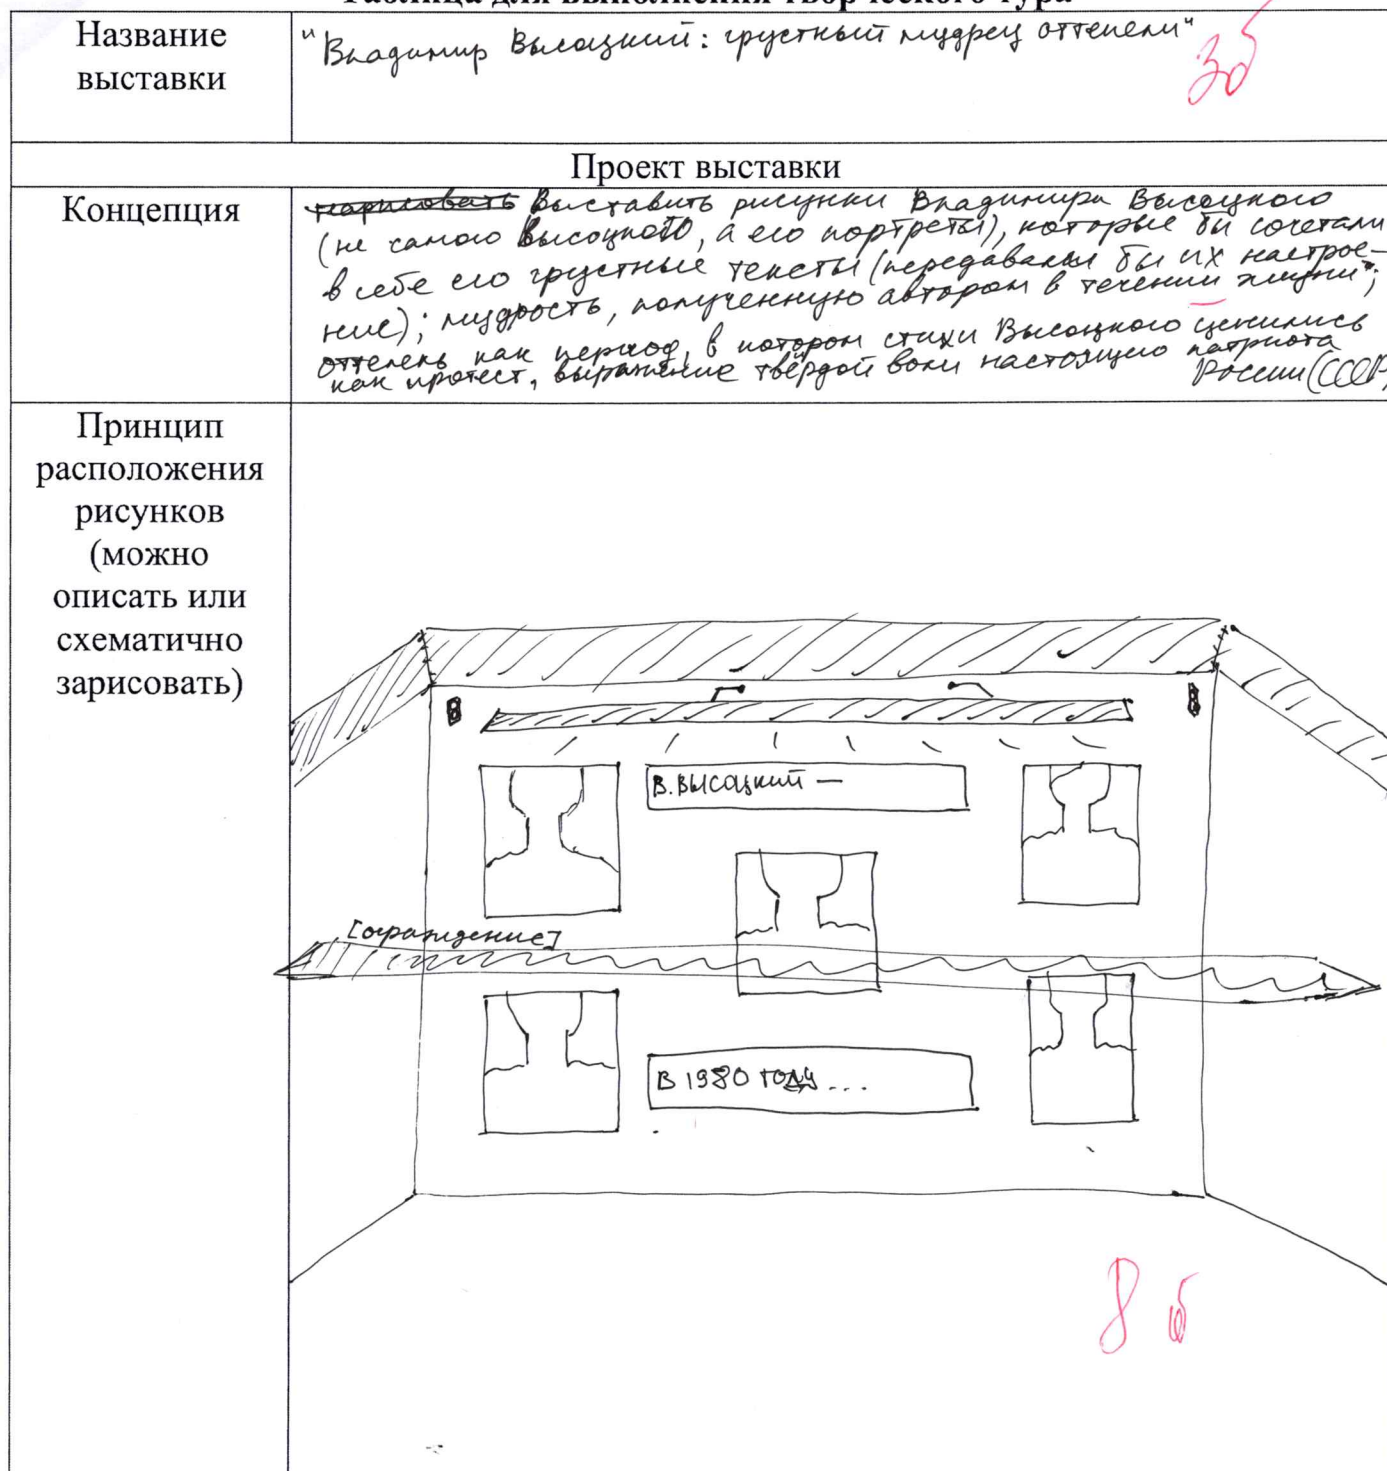 Таблица для выполнения творческого тура
Название
выставки
"Владимир Высоцкий: грустный мудрец оттепели"
3б
Проект выставки
Концепция
нарисовать Выставить рисунки Владимира Высоцкого
(не самого Высоцкого, а его портреты), которые бы сочетали
в себе его грустные тексты (передавали бы их настрое-
ние); мудрость, полученную автором в течении жизни;
оттепель как период, в котором стихи Высоцкого ценились
как протест, выражение твёрдой воли настоящего патриота
России (СССР)
Принцип
расположения
рисунков
(можно
описать или
схематично
зарисовать)
В. Высоцкий —
[ограждение]
В 1980 году ...
8 б